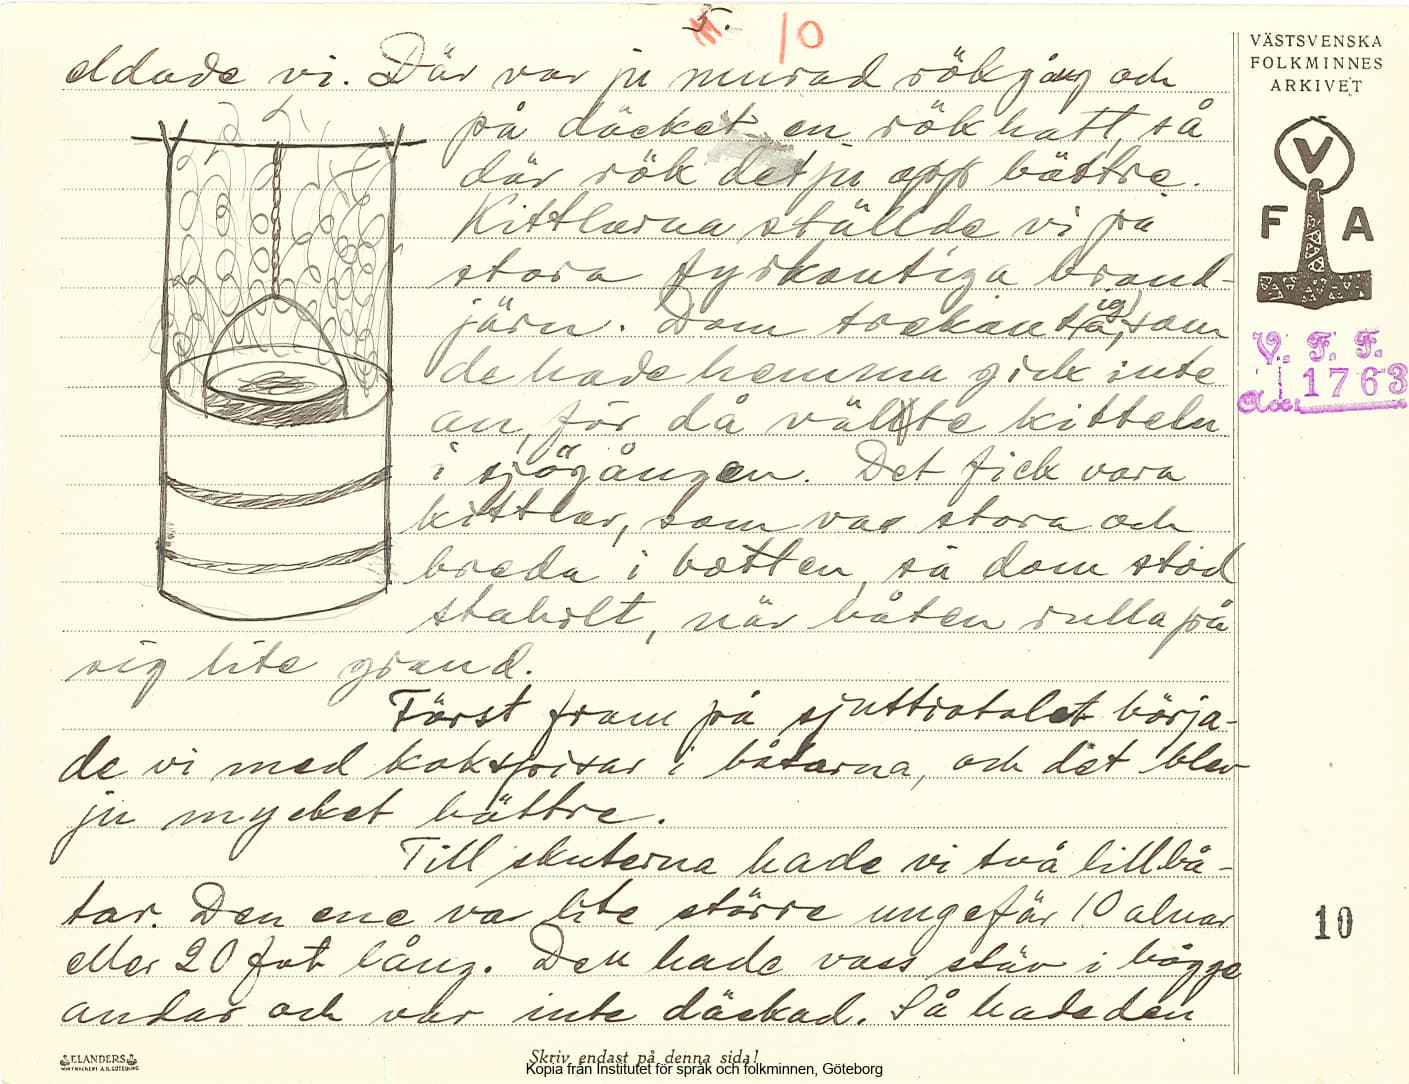 5.
10
eldade vi. Där var ju murad rökgång och
på däcket en rökhatt, så
där rök det ju opp bättre.
Kittlarna ställde vi på
stora fyrkantiga brand-
järn. Dom trekantiga, som
de hade hemma gick inte
an, för då välte kitteln
i sjögången. Det fick vara
kittlar, som var stora och
breda i botten, så dom stod
stabilt, när båten rulla på
sig lite grand.
Först fram på sjuttiotalet börja-
de vi med kokspisar i båtarna, och det blev
ju mycket bättre.
Till skuterna hade vi två lillbå-
tar. Den ene va lite större ungefär 10 alnar
eller 20 fot lång. Den hade vass stäv i bägge
ändar och var inte däckad. Så hade den
VÄSTSVENSKA
FOLKMINNES
ARKIVET
V
F A
V. F. F.
Acc. 1763
10
F.LANDERS
Skriv endast på denna sida!
Kopia från Institutet för språk och folkminnen, Göteborg